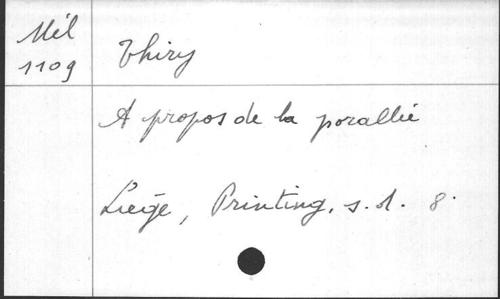 Mél
1109
Thiry
A propos de la porallée
Liège, Printing, s.d. 8.